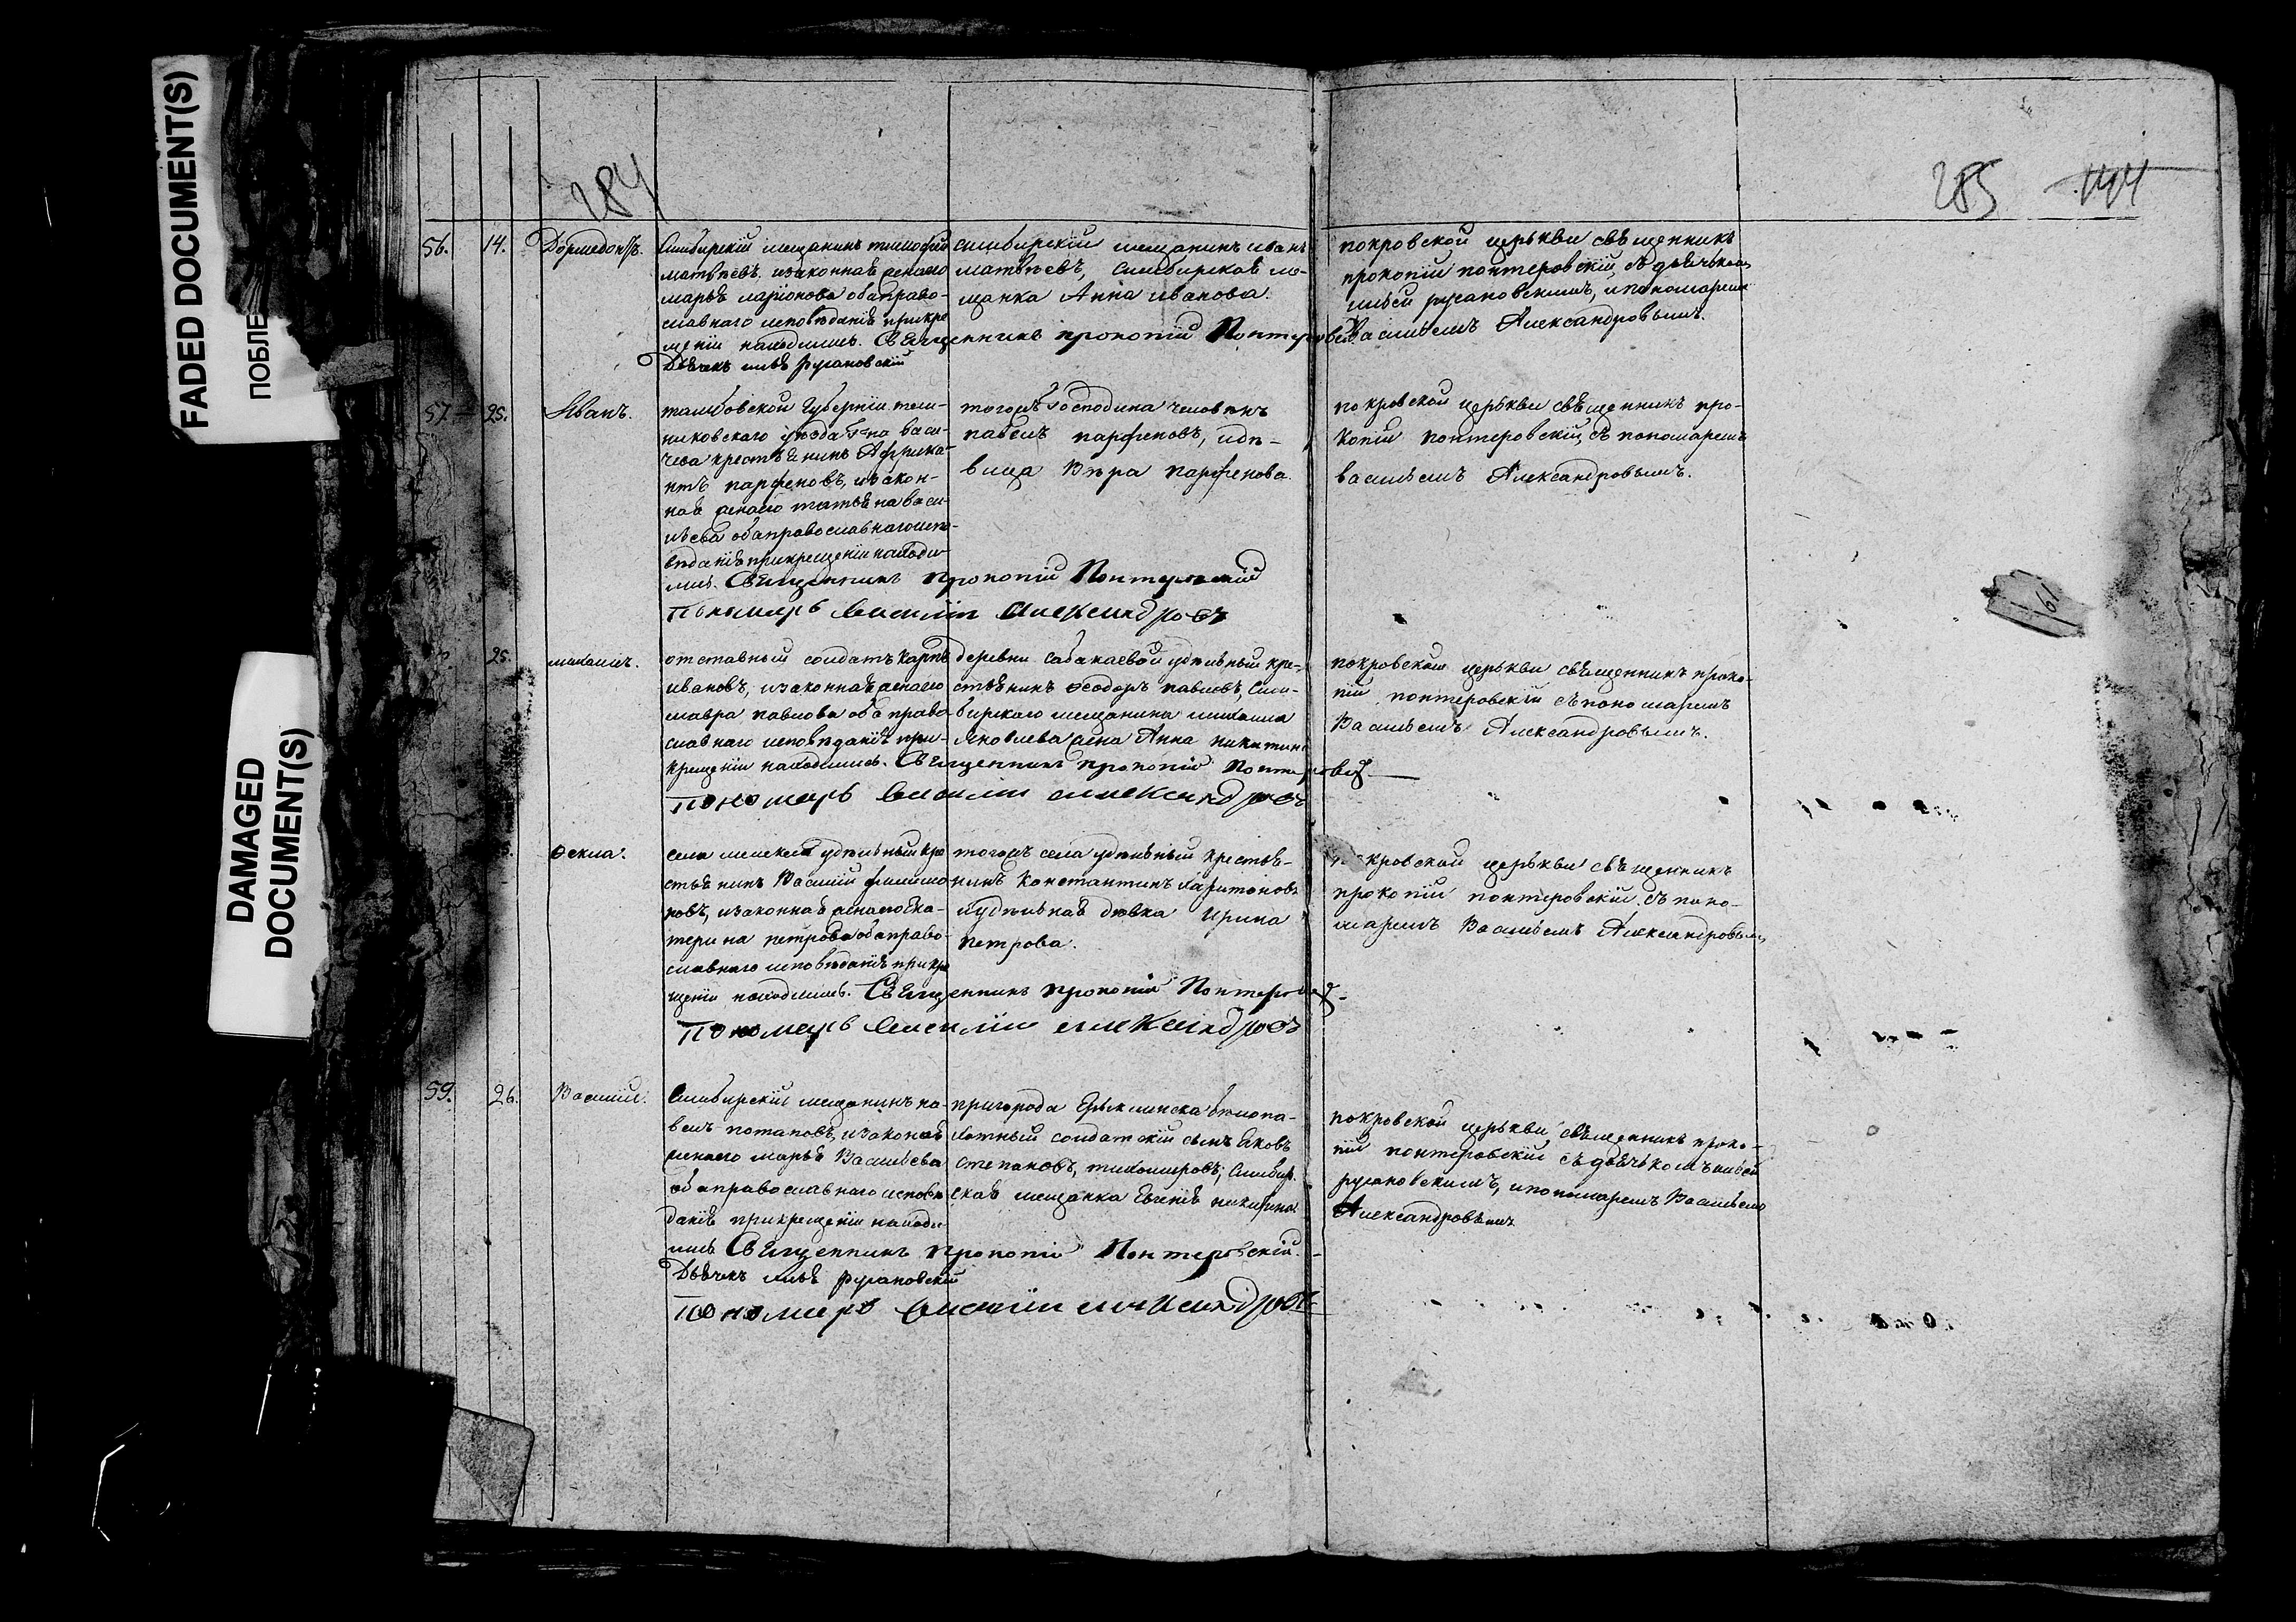 FADED DOCUMENT(S)
ПОБЛЕ
DAMAGED
DOCUMENT(S)
284
285 144
19
56. 14. Дормедонтъ.
Симбирскій мещанинъ тимофей
матвѣевъ, изаконная женаего
марья ларіонова обаправо-
славнаго исповѣданія прикре
щеніи находились. Священникъ прокопій Понтеровск
Дьячекъ илья русановскій
симбирскій мещанинъ иванъ
матвѣевъ, Симбирская ме-
щанка Анна иванова.
покровской церькви священникъ
прокопій понтеровскій, съ дьячькомъ
ильей русановскимъ, ипономаремъ
Васильемъ Александровымъ.
57. 25. Иванъ.
тамбовской Губерніи тем-
никовскаго уезда Г-на васи-
чева крестьянинъ Африка-
нтъ парфеновъ, изакон-
ная женаего татьянаваси-
льева обаправославнагоиспо-
веданія прикрещеніи находи-
лись. Священникъ прокопій Понтеровскій
Пономарь василій александровъ
тогожъ Господина человѣкъ
павелъ парфеновъ, идѣ-
вица Вѣра парфенова.
покровской церькви священникъ про-
копій понтеровскій, съ пономаремъ
васильемъ Александровымъ.
25. михаилъ.
отставный солдатъ Карпъ
ивановъ, изаконная женаего
мавра павлова оба право-
славнаго исповѣданія при-
крещеніи находились. Священникъ прокопій Понтеровск
пономарь василій александровъ
деревни сабакаевой удѣльный кре-
стьянинъ ѳеодоръ павловъ, Сим-
бирскаго мещанина михаила
Яковлева жена Анна никитина
покровской церькви священникъ проко-
пій понтеровскій съ пономаремъ
Васильемъ Александровымъ.
Ѳекла.
села удѣльный кре
стьянинъ Василій филимо
новъ, изаконная женаего Ека-
терина петрова обаправо-
славнаго исповѣданія прикре
щеніи находились. Священникъ прокопій Понтеровск
пономарь василій александровъ
тогожъ села удѣльный крестья-
нинъ Константинъ харитоновъ
иудѣльная дѣвка Ирина
петрова.
покровской церькви священникъ
прокопій понтеровскій. съ поно-
маремъ Васильемъ Александровымъ
59. 26. Василій.
Симбирскій мещанинъ па-
велъ потаповъ, изаконная
женаего марья Васильева
оба православнаго исповѣ
данія прикрещеніи находи
лись Священникъ прокопій Понтеровскій.
Дьячекъ илья русановскій
пономарь василій александровъ
пригорода Ерыклинска бѣлопа-
хотный солдатскій сынъ Яковъ
степановъ, тихомировъ; Симбир.
ская мещанка Евгенія
покровской церькви священникъ проко-
пій понтеровскій съ дьячькомъ ильей
русановскимъ, ипономаремъ Васильемъ
Александровымъ